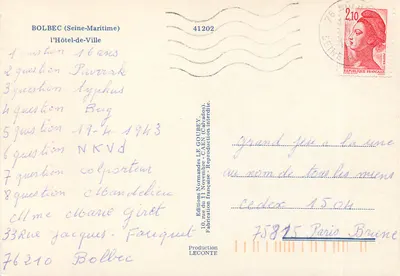 BOLBEC (Seine-Maritime)
l'Hôtel-de-Ville
1 question 16 ans
2 question Pavarak
3 question Typhus
4 question Bug
5 question 17-4-1943
6 question NKVD
7 question colporteur
8 question Mandelieu
Mme Marie Girot
33 Rue Jacques. Fauquet
76210 Bolbec
41202
Editions Normandes LE GOUBEY
10, rue du 11 Novembre - CAEN (Calvados).
Fabrication Française - Reproduction interdite.
Production
LECONTE
2,10
REPUBLIQUE FRANÇAISE
76
grand jeu à la une
au nom de tous les miens
codex 1504
75815 Paris Brune